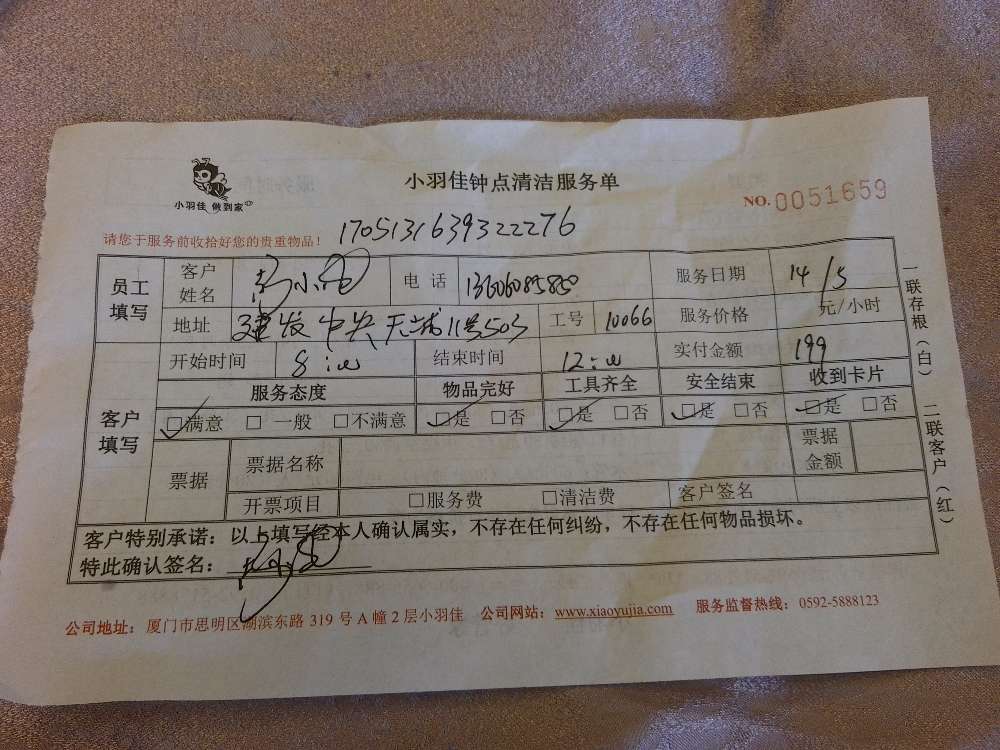 小羽佳 做到家
小羽佳钟点清洁服务单
NO. 0051659
请您于服务前收拾好您的贵重物品！ 170513163932 2276
员工填写 客户姓名 电话 13606085850 服务日期 14/5
地址 建发中央天城11号503 工号 10066 服务价格 元/小时
客户填写 开始时间 8:00 结束时间 12:00 实付金额 199
服务态度 物品完好 工具齐全 安全结束 收到卡片
□满意 □一般 □不满意 □是 □否 □是 □否 □是 □否 □是 □否
票据 票据名称 票据金额
开票项目 □服务费 □清洁费 客户签名
客户特别承诺：以上填写经本人确认属实，不存在任何纠纷，不存在任何物品损坏。
特此确认签名：
一联存根（白） 二联客户（红）
公司地址：厦门市思明区湖滨东路 319 号 A 幢 2 层小羽佳 公司网站：www.xiaoyujia.com 服务监督热线：0592-5888123